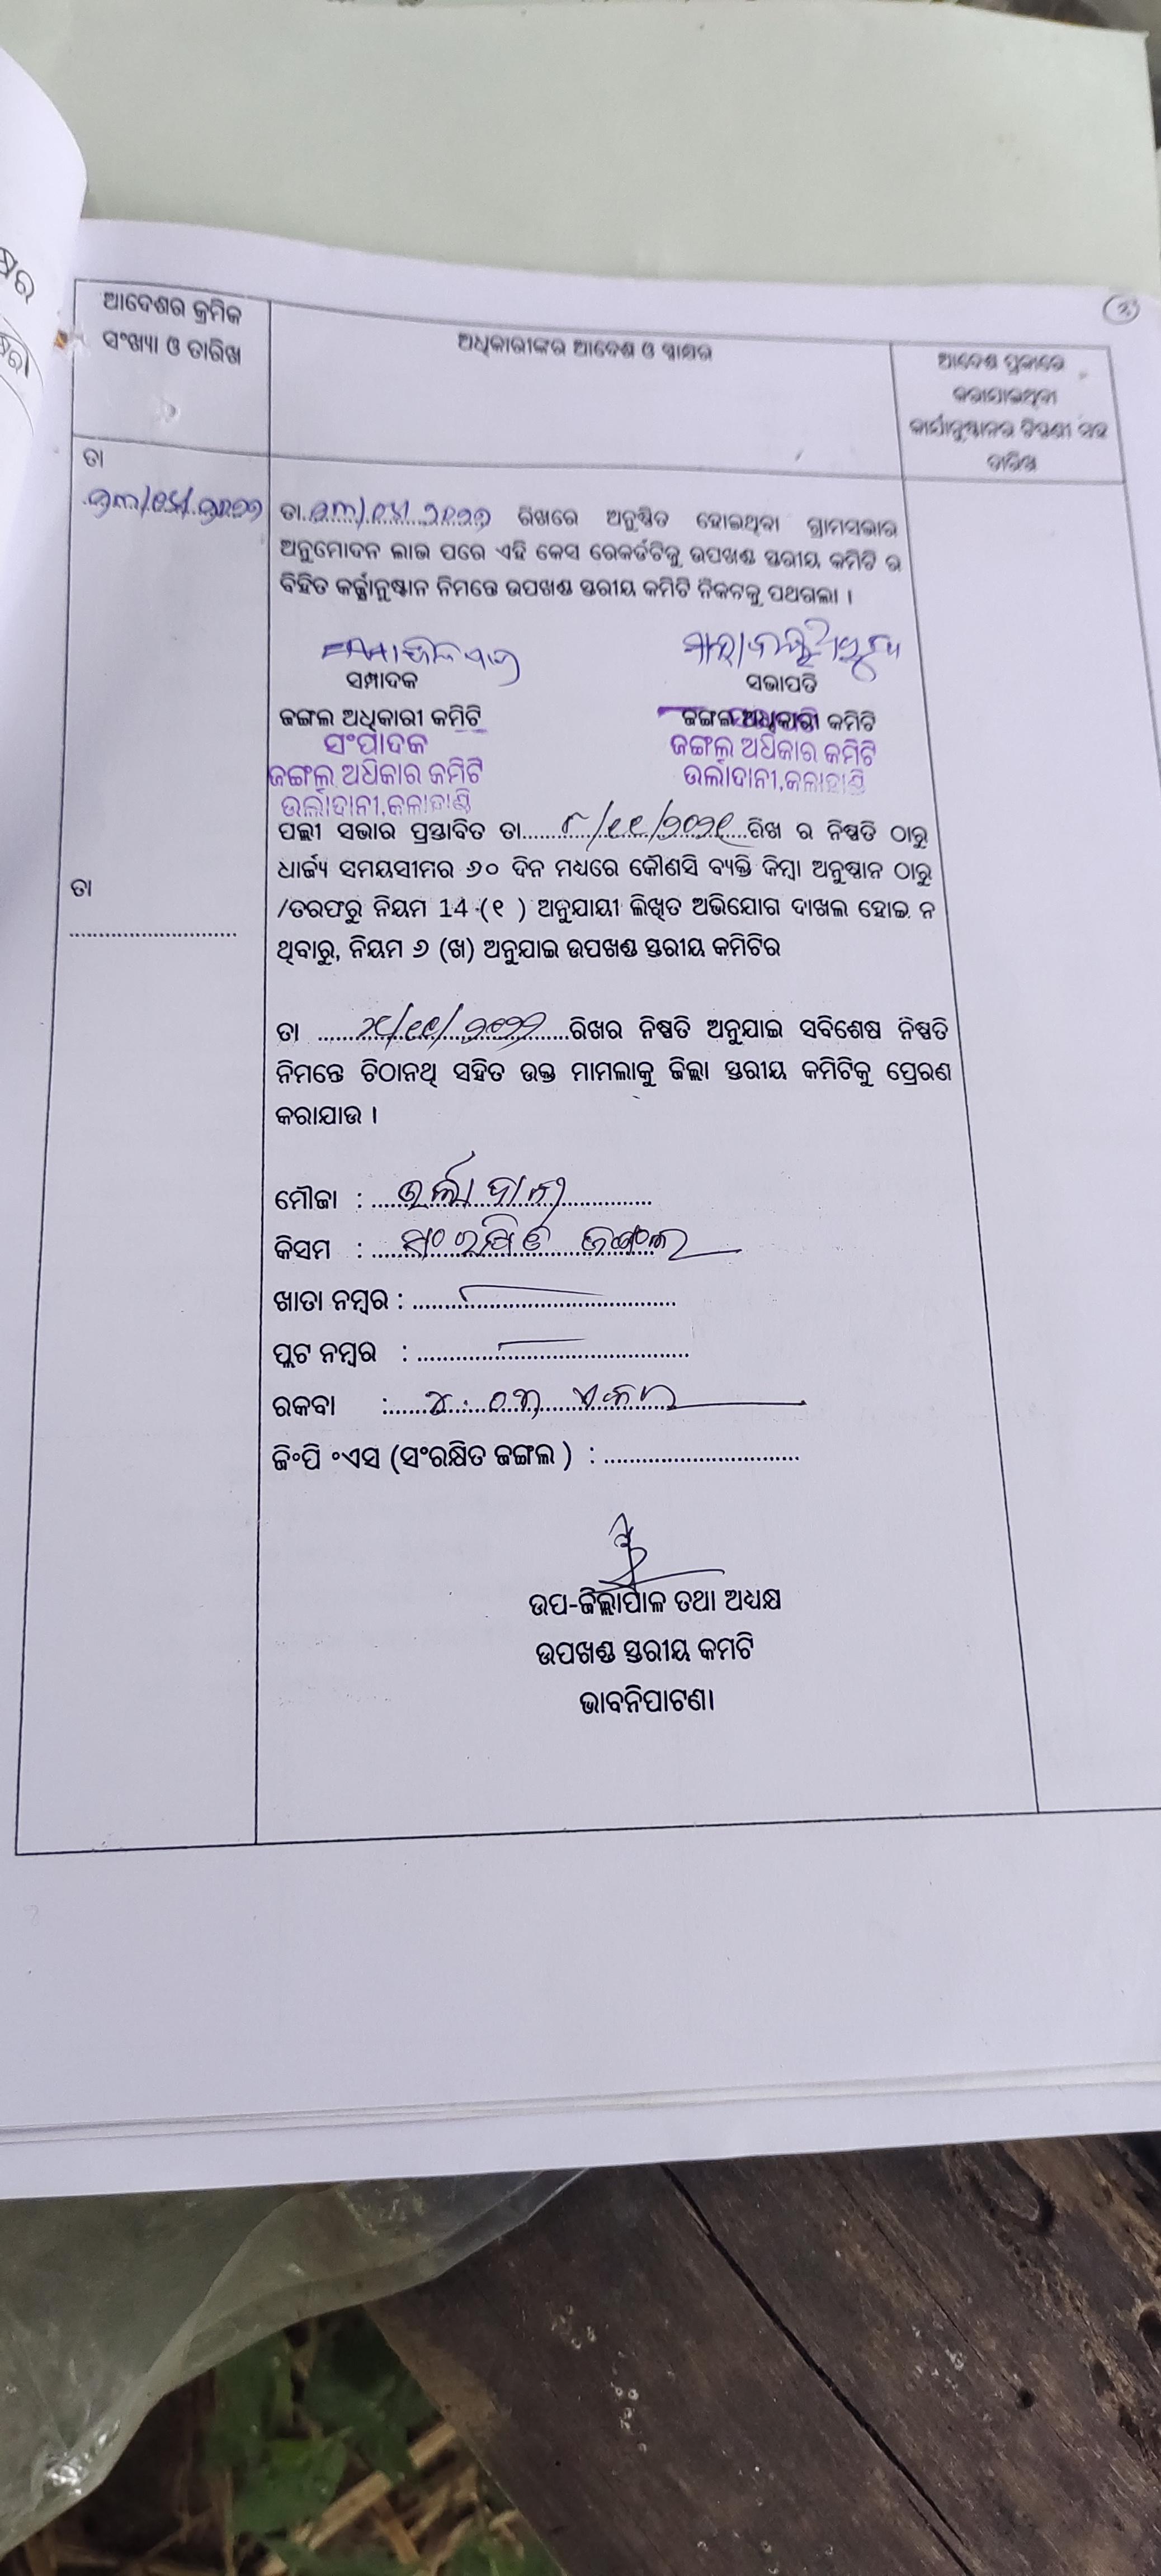 ଆଦେଶର କ୍ରମିକ
ସଂଖ୍ୟା ଓ ତାରିଖ
ଅଧିକାରୀଙ୍କର ଆଦେଶ ଓ ସ୍ୱାକ୍ଷର
ଆଦେଶ ପ୍ରକାରେ
କରାଯାଇଥିବା
କାର୍ଯ୍ୟାନୁଷ୍ଠାନର ଟିପ୍ପଣୀ ସହ
ତାରିଖ
ତା
ତା ରିଖରେ ଅନୁଷ୍ଠିତ ହୋଇଥିବା ଗ୍ରାମସଭାର
ଅନୁମୋଦନ ଲାଭ ପରେ ଏହି କେସ ରେକର୍ଡଟିକୁ ଉପଖଣ୍ଡ ସ୍ତରୀୟ କମିଟି ର
ବିହିତ କର୍ଯ୍ଯାନୁଷ୍ଠାନ ନିମନ୍ତେ ଉପଖଣ୍ଡ ସ୍ତରୀୟ କମିଟି ନିକଟକୁ ପଥଗଲା ।
ସମ୍ପାଦକ
ସଭାପତି
ଜଙ୍ଗଲ ଅଧିକାରୀ କମିଟି
ଜଙ୍ଗଲ ଅଧିକାରୀ କମିଟି
ସଂପାଦକ
ଜଙ୍ଗଲ ଅଧିକାର କମିଟି
ଉର୍ଲାଦାନୀ,କଳାହାଣ୍ଡି
ଜଙ୍ଗଲ ଅଧିକାର କମିଟି
ଉର୍ଲାଦାନୀ,କଳାହାଣ୍ଡି
ପଲ୍ଲୀ ସଭାର ପ୍ରସ୍ତାବିତ ତା ୮/୧୧/୨୦୨୧ ରିଖ ର ନିଷ୍ପତି ଠାରୁ
ଧାର୍ଜ୍ୟ ସମୟସୀମର ୬୦ ଦିନ ମଧ୍ୟରେ କୌଣସି ବ୍ୟକ୍ତି କିମ୍ବା ଅନୁଷ୍ଠାନ ଠାରୁ
/ତରଫରୁ ନିୟମ 14 (୧ ) ଅନୁଯାୟୀ ଲିଖିତ ଅଭିଯୋଗ ଦାଖଲ ହୋଇ ନ
ତା
ଥିବାରୁ, ନିୟମ ୬ (ଖ) ଅନୁଯାଇ ଉପଖଣ୍ଡ ସ୍ତରୀୟ କମିଟିର
ତା ରିଖର ନିଷ୍ପତି ଅନୁଯାଇ ସବିଶେଷ ନିଷ୍ପତି
ନିମନ୍ତେ ଚିଠାନଥି ସହିତ ଉକ୍ତ ମାମଲାକୁ ଜିଲ୍ଲା ସ୍ତରୀୟ କମିଟିକୁ ପ୍ରେରଣ
କରାଯାଉ ।
ମୌଜା : ଉର୍ଲାଦାନୀ
କିସମ : ସଂରକ୍ଷିତ ଜଙ୍ଗଲ
ଖାତା ନମ୍ବର :
ପ୍ଲଟ ନମ୍ବର :
ରକବା : ଏକର
ଜିଂପି ଂଏସ (ସଂରକ୍ଷିତ ଜଙ୍ଗଲ ) :
ଉପ-ଜିଲ୍ଲାପାଳ ତଥା ଅଧ୍ୟକ୍ଷ
ଉପଖଣ୍ଡ ସ୍ତରୀୟ କମଟି
ଭାବନିପାଟଣା